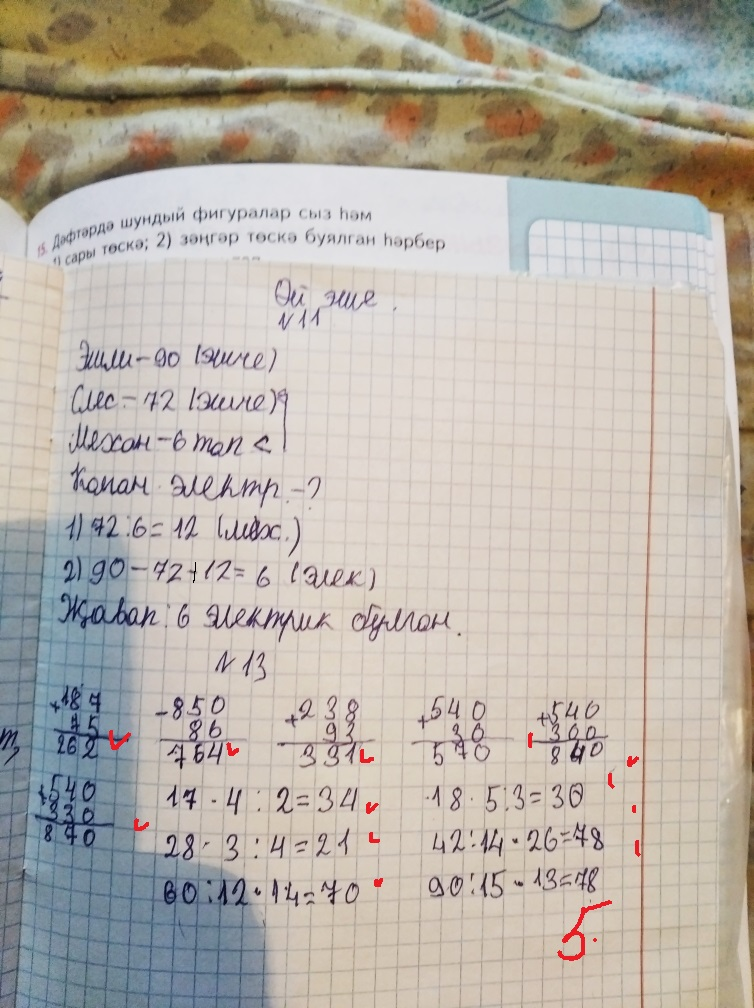 15. Дәфтәрдә шундый фигуралар сыз һәм
1) сары төскә; 2) зәңгәр төскә буялган һәрбер
Өй эше.
№11
Эшли-90 (эшче)
Слес.-72 (эшче)?
Механ-6 тап <
Калган электр.-?
1) 72:6=12 (мех.)
2) 90-72+12=6 (элек)
Җавап: 6 электрик булган.
№13
+187 -850 +238 +540 +540
75 86 93 30 300
262 764 331 570 840
+540
330
870
17·4:2=34 18·5:3=30
28·3:4=21 42:14·26=78
60:12·14=70 90:15·13=78
5.